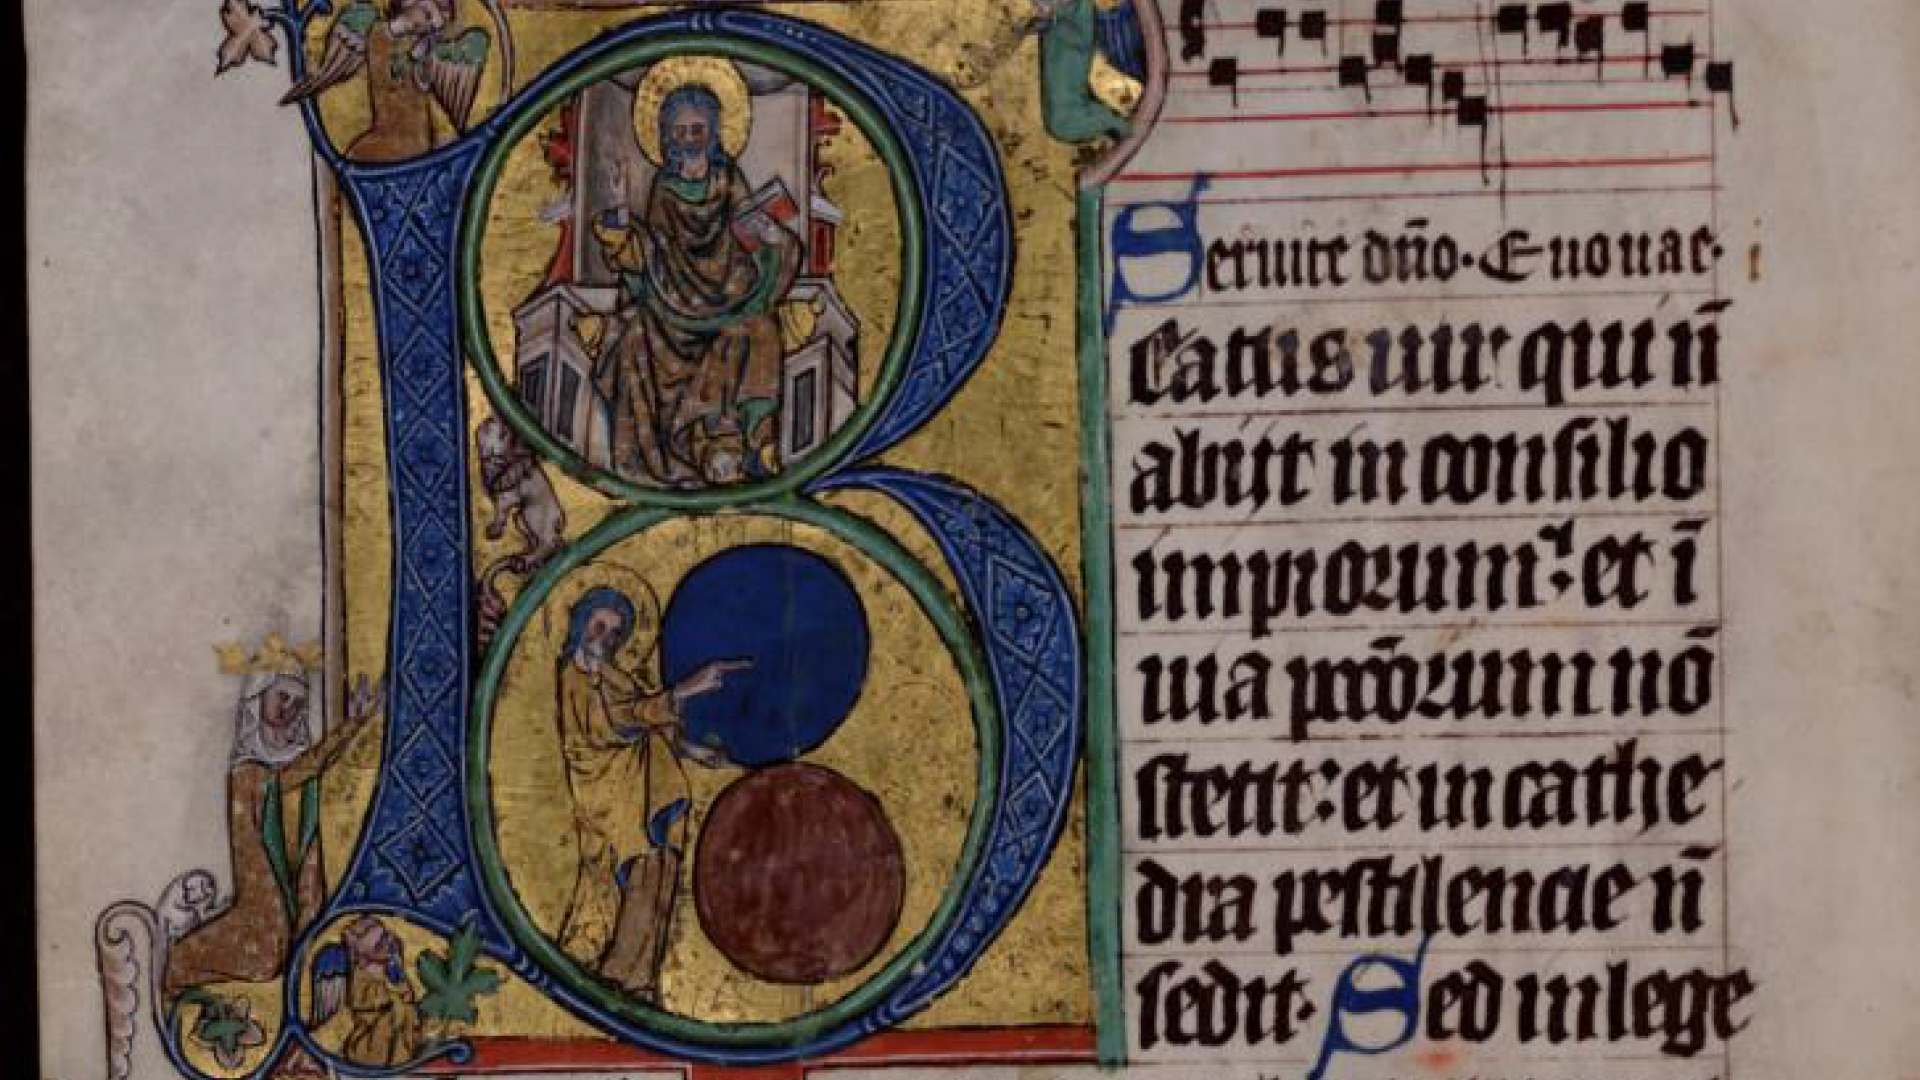 Seruite dño. Euouae.
Eatus uir qui ñ
abijt in consilio
impiorum: et ī
uia pccõrum nõ
stetit: et in cathe
dra pestilencie ñ
sedit. Sed in lege